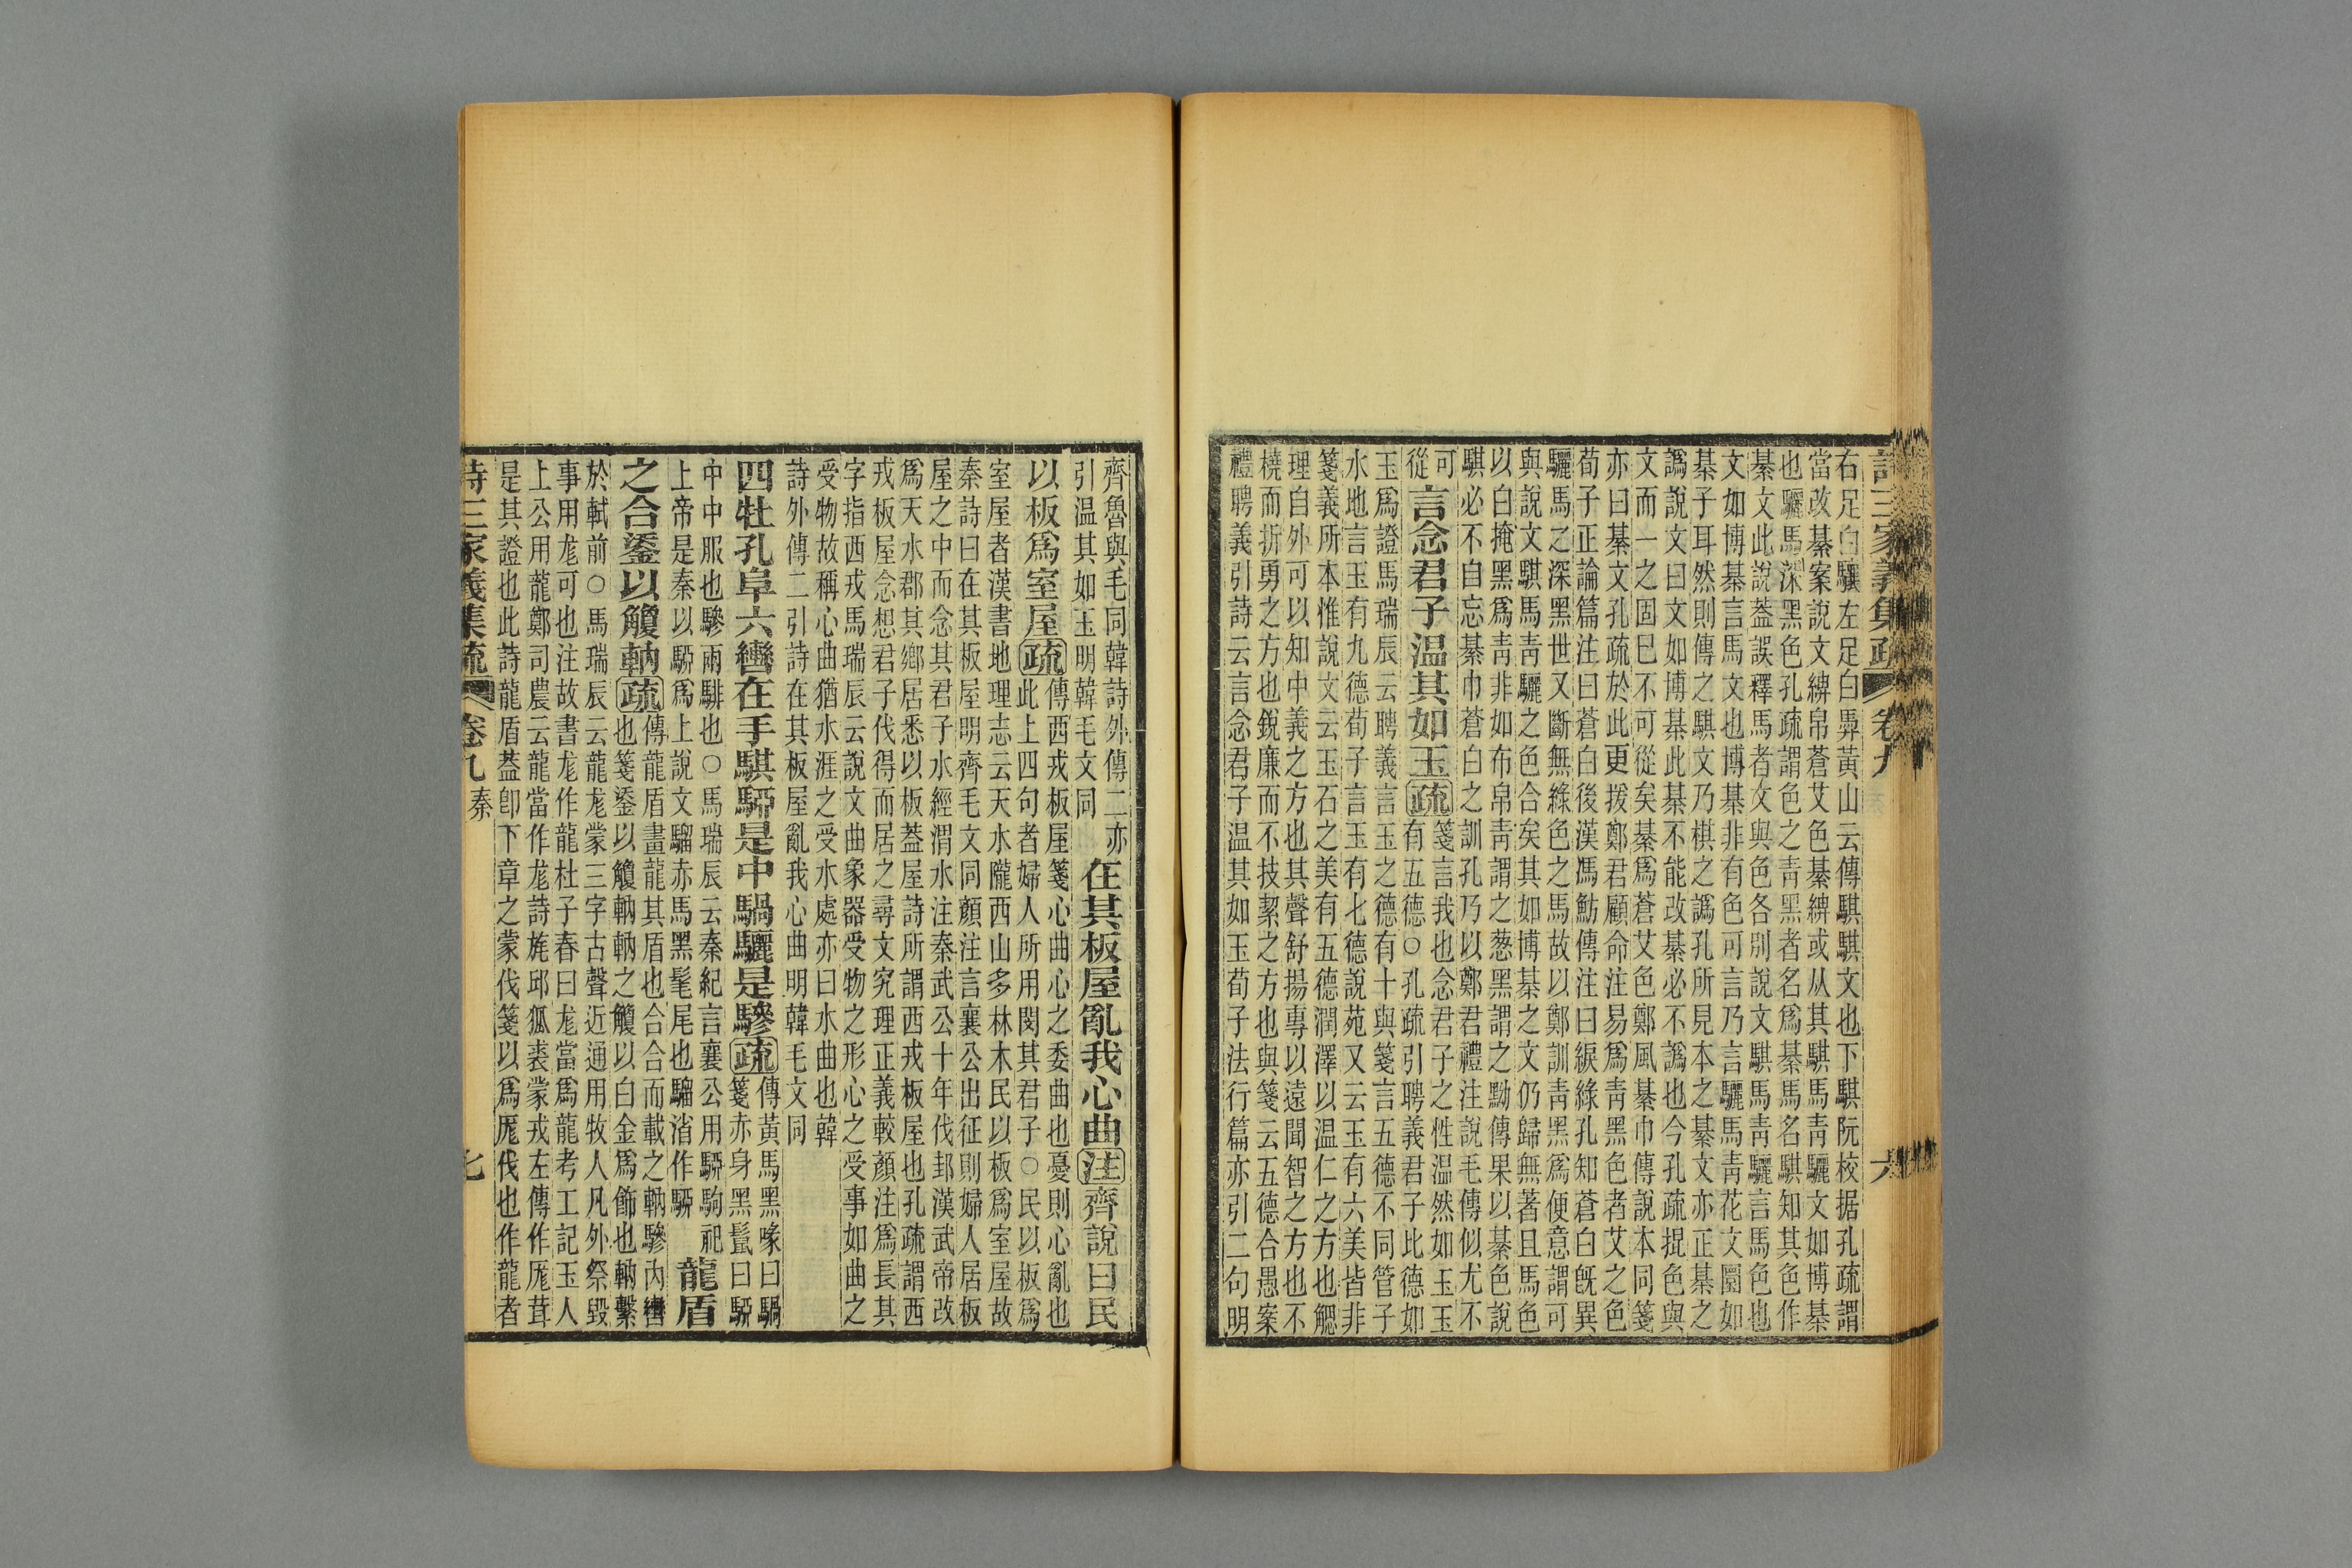 詩三家義集疏 卷九 六
右足白驤左足白馵黃山云傳騏騏文也下騏阮校据孔疏謂
當改綦案說文綥帛蒼艾色綦綥或从其騏馬青驪文如博綦
也驪馬深黑色孔疏謂色之青黑者名爲綦馬名騏知其色作
綦文此說葢誤釋馬者文與色各別說文騏馬青驪言馬色也
文如博綦言馬文也博綦非有色可言乃言驪馬青花文圜如
綦子耳然則傳之騏文乃棋之譌孔所見本之綦文亦正綦之
譌說文曰文如博綦此綦不能改綦必不譌也今孔疏捉色與
文而一之固巳不可從矣綦爲蒼艾色鄭風綦巾傳說本同箋
亦曰綦文孔疏於此更援鄭君顧命注易爲青黑色者艾之色
荀子正論篇注曰蒼白後漢馮魴傳注曰綟綠孔知蒼白旣異
驪馬之深黑世又斷無綠色之馬故以鄭訓青黑爲便意謂可
與說文騏馬青驪之色合矣其如博綦之文仍歸無著且馬色
以白掩黑爲青非如布帛青謂之葱黑謂之黝傳果以綦色說
騏必不自忘綦巾蒼白之訓孔乃以鄭君禮注說毛傳似尤不
可從言念君子温其如玉疏箋言我也念君子之性温然如玉玉
有五德○孔疏引聘義君子比德如
玉爲證馬瑞辰云聘義言玉之德有十與箋言五德不同管子
水地言玉有九德荀子言玉有七德說苑又云玉有六美皆非
箋義所本惟說文云玉石之美有五德潤澤以温仁之方也䚡
理自外可以知中義之方也其聲舒揚專以遠聞智之方也不
橈而折勇之方也銳廉而不技絜之方也與箋云五德合愚案
禮聘義引詩云言念君子温其如玉荀子法行篇亦引二句明
齊魯與毛同韓詩外傳二亦
引温其如玉明韓毛文同在其板屋亂我心曲注齊說曰民
以板爲室屋疏傳西戎板屋箋心曲心之委曲也憂則心亂也
此上四句者婦人所用閔其君子○民以板爲
室屋者漢書地理志云天水隴西山多林木民以板爲室屋故
秦詩曰在其板屋明齊毛文同顏注言襄公出征則婦人居板
屋之中而念其君子水經渭水注秦武公十年伐邽漢武帝改
爲天水郡其鄉居悉以板葢屋詩所謂西戎板屋也孔疏謂西
戎板屋念想君子伐得而居之尋文究理正義較顏注爲長其
字指西戎馬瑞辰云說文曲象器受物之形心之受事如曲之
受物故稱心曲猶水涯之受水處亦曰水曲也韓
詩外傳二引詩在其板屋亂我心曲明韓毛文同
四牡孔阜六轡在手騏駵是中騧驪是驂疏傳黃馬黑喙曰騧
箋赤身黑鬛曰駵
中中服也驂兩騑也○馬瑞辰云秦紀言襄公用駵駒祀
上帝是秦以駵爲上說文騮赤馬黑髦尾也騮消作駵龍盾
之合鋈以觼軜疏傳龍盾畫龍其盾也合合而載之軜驂內轡
也箋鋈以觼軜軜之觼以白金爲飾也軜繫
於軾前○馬瑞辰云龍尨蒙三字古聲近通用牧人凡外祭毀
事用尨可也注故書尨作龍杜子春曰尨當爲龍考工記玉人
上公用龍鄭司農云龍當作尨詩旄邱狐裘蒙戎左傳作厖茸
是其證也此詩龍盾葢卽下章之蒙伐箋以爲厖伐也作龍者
詩三家義集疏 卷九 秦 七